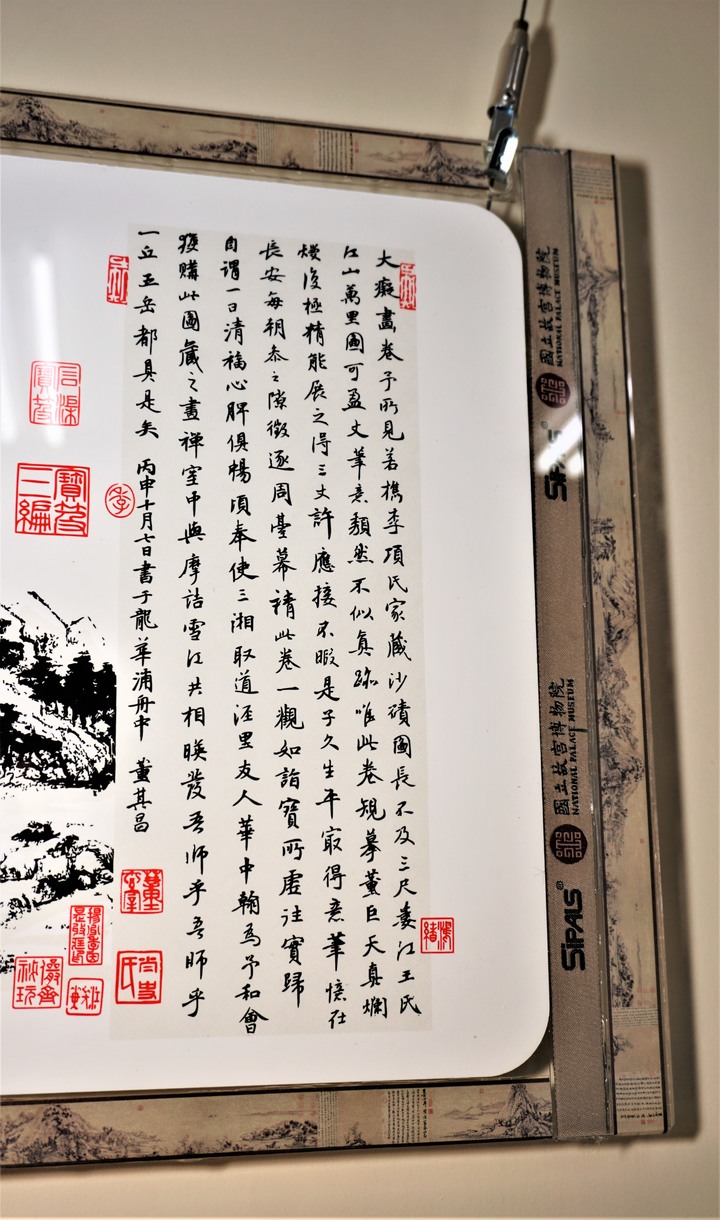 大癡畫卷予所見若檇李項氏家藏沙磧圖長不及三尺婁江王氏
江山萬里圖可盈丈筆意頹然不似真跡唯此卷規摹董巨天真爛
熳復極精能展之得三丈許應接不暇是子久生平最得意筆憶在
長安每朝參之隙徵逐周臺幕請此卷一觀如詣寶所虛往實歸
自謂一日清福心脾俱暢頃奉使三湘取道涇里友人華中翰為予和會
獲購此圖藏之畫禪室中與摩詰雪江共相暎發吾師乎吾師乎
一丘五岳都具是矣 丙申十月七日書于龍華浦舟中 董其昌
石渠寶笈
寶笈三編
國立故宮博物院
NATIONAL PALACE MUSEUM
SiPALS®
國立故宮博物院
NATIONAL PALACE MUSEUM
SiPALS®